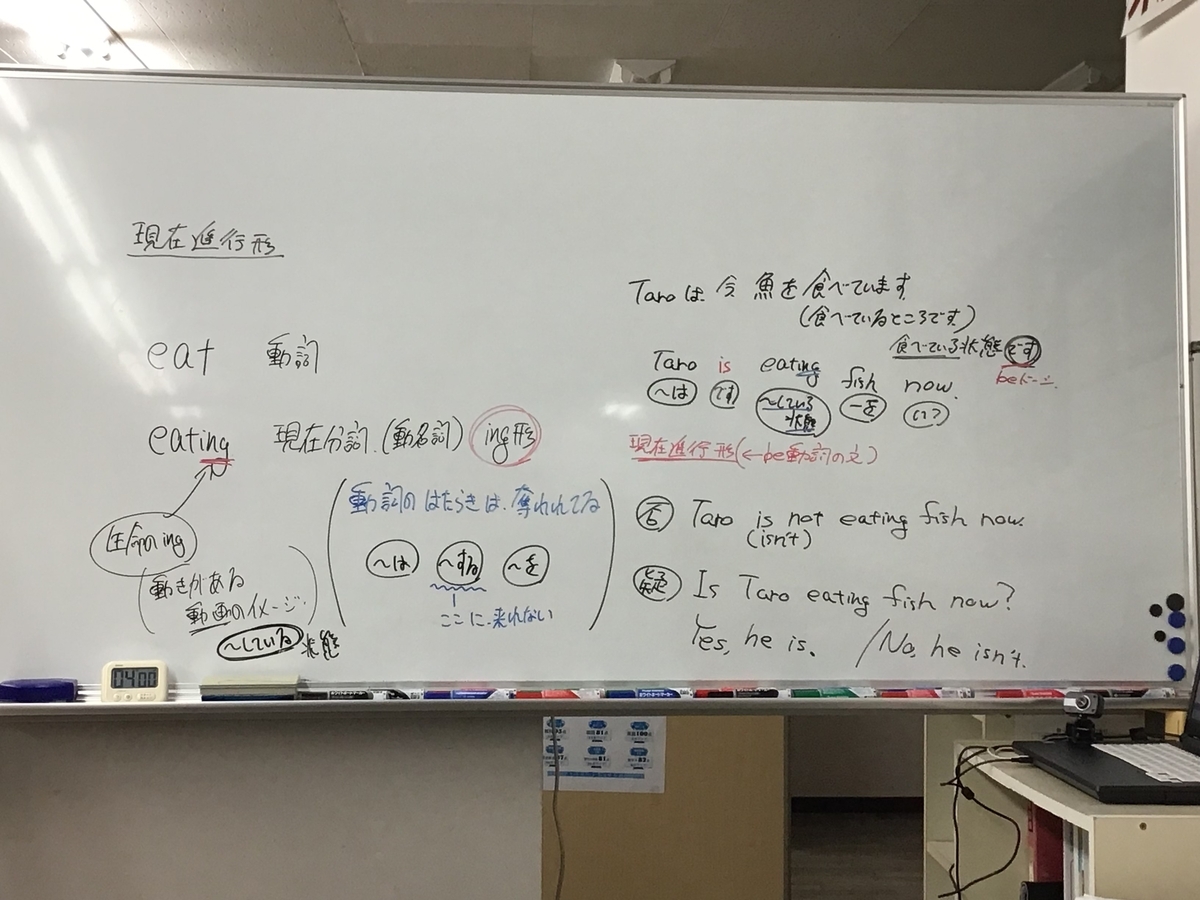 現在進行形
eat 動詞
eating 現在分詞.(動名詞) ing形
生命のing
(動きがある
動画のイメージ.)
〜している 状態
(動詞のはたらきは、奪われてる
〜は 〜する 〜を
ここに、来れない)
Taroは 今 魚を食べています
(食べているところです)
食べている状態です
be動詞
Taro is eating fish now.
〜は です 〜している状態 〜を
現在進行形(←be動詞の文)
否 Taro is not eating fish now.
(isn't)
疑 Is Taro eating fish now?
Yes, he is. / No, he isn't.
04:00